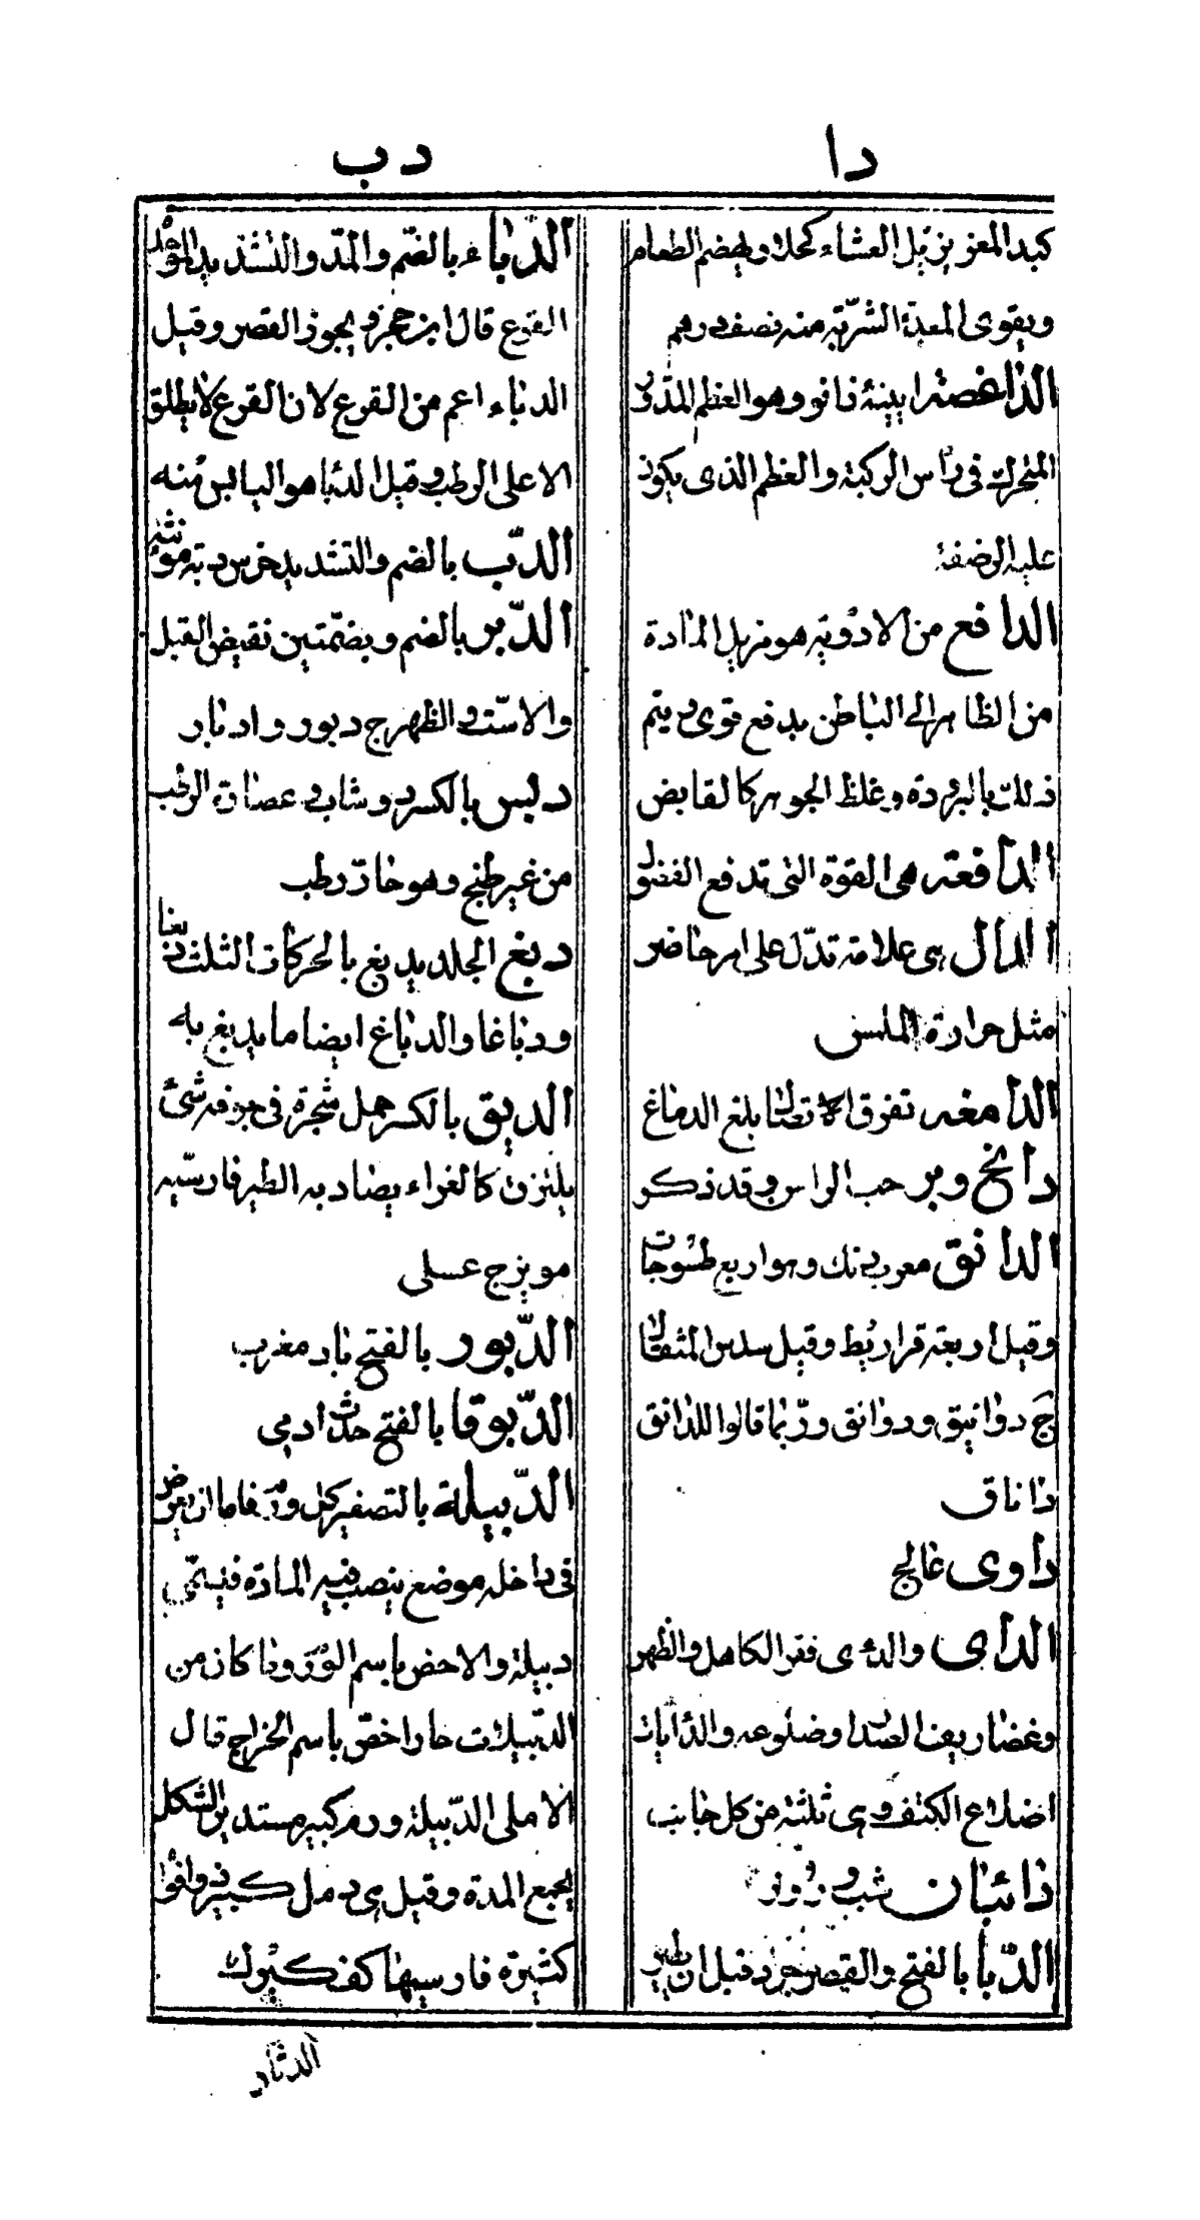 دا
دب
كبد المعز يزيل العشاء كحلا ويهضم الطعام
ويقوى المعدة الشربة منه نصف درهم
الداغصة ابينة زانو وهو العظم المدور
المتحرك فى راس الركبة والعظم الذى يكون
عليه الرضفة
الدافع من الادوية هو مزيل المادة
من الظاهر الى الباطن بدفع قوى ويتم
ذلك بالبرودة وغلظ الجوهر كالقابض
الدافعة هى القوة التى تدفع الفضول
الدال هى علامة تدل على امر حاضر
مثل حرارة الملمس
الدامغه تفرق اتصال بلغ الدماغ
دانخ وبر حب الراس وقد ذكر
الدانق معرب دنك وهو اربع طسوجات
وقيل اربعة قراريط وقيل سدس المثقال
ج دوانيق ودوانق وربما قالوا للدانق
داناق
داوى عالج
الداى والدءى فقر الكاهل والظهر
وغضاريف الصدر وضلوعه والدايات
اضلاع الكتف وهى ثلثة من كل جانب
دائبان شب وروز
الدبا بالفتح والقصر جراد قبل ان يطير
الدباء بالضم والمد والتشديد الموحد
القرع قال ابن حجر ويجوز القصر وقيل
الدباء اعم من القرع لان القرع لا يطلق
الا على الرطب وقيل الدبا هو اليابس منه
الدب بالضم والتشديد خرس دبة مؤنثه
الدبر بالضم وبضمتين نقيض القبل
والاست والظهر ج دبور وادبار
دبس بالكسر دوشاب وعصارة الرطب
من غير طبخ وهو حار رطب
دبغ الجلد يدبغ بالحركات الثلث دبغا
ودباغا والدباغ ايضا ما يدبغ به
الدبق بالكسر حمل شجرة فى جوفه شئ
يلتزق كالغراء يصاد به الطير فارسيه
مويزج عسلى
الدبور بالفتح باد مغرب
الدبوقا بالفتح حدث ادمى
الدبيلة بالتصغير كل ورم فاما ان يعرض
فى داخله موضع ينصب فيه المادة فيسمى
دبيلة والا خص باسم الورم وما كان من
الدبيلات حارا خص باسم الخراج قال
الاملى الدبيلة ورم كبير مستدير الشكل
يجمع المدة وقيل هى دمل كبير ذو افواه
كثيرة فارسيها كفكيرك
الدثار